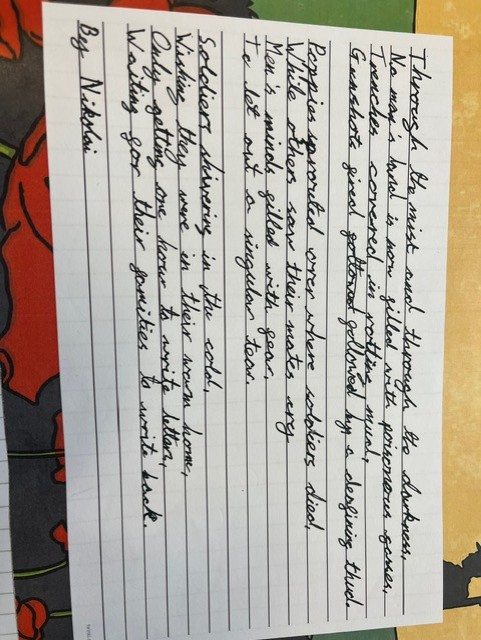 Through the mist and through the darkness,
No may's land is now filled with poisonous gasses,
Trenches covered in rotting mud,
Gunshots fired followed by a defining thud.
Poppies sprouted over where soldiers died,
While others saw their mates cry
Men's minds filled with fear,
To let out a singular tear.
Soldiers shivering in the cold,
Wishing they were in their warm home,
Only getting one hour to write letters,
Waiting for their families to write back.
By Nikolai